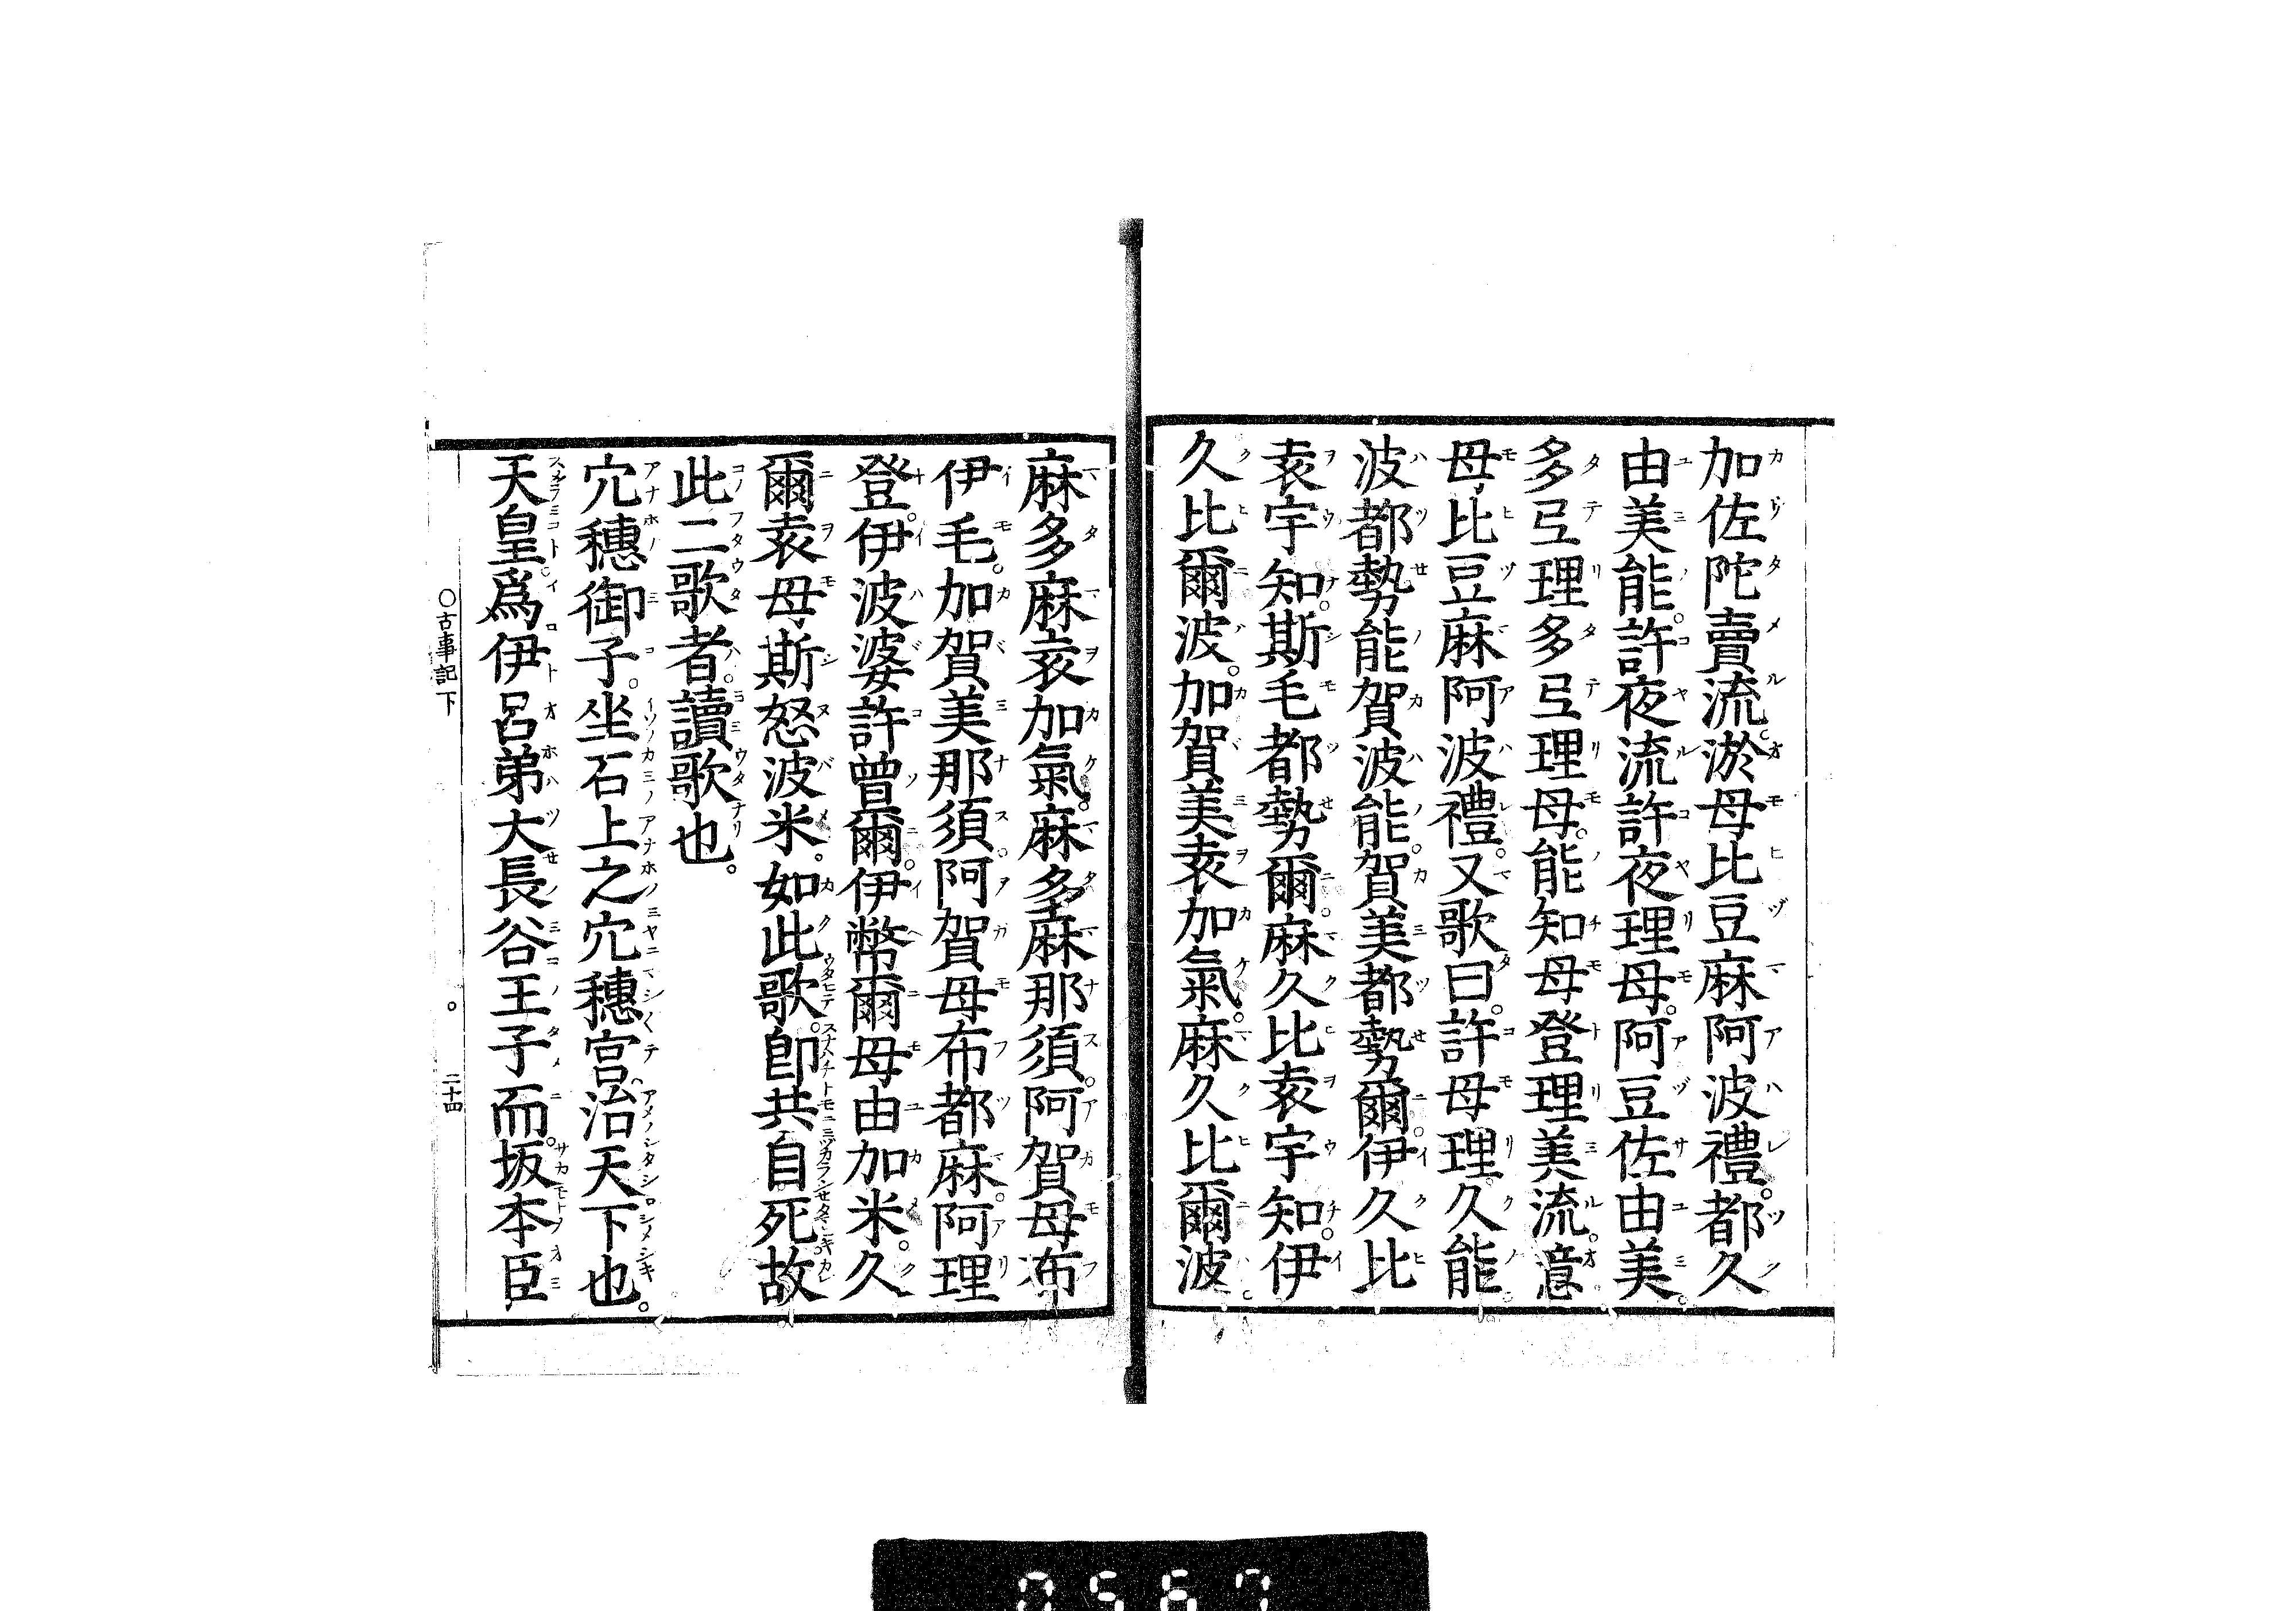 加佐陀賣流淤母比豆麻阿波禮。都久
由美能。許夜流許夜理母。阿豆佐由美。
多弖理多弖理母。能知母登理美流。意
母比豆麻阿波禮。又歌曰。許母理久能
波都勢能賀波能。賀美都勢爾。伊久比
袁宇知。斯毛都勢爾。麻久比袁宇知。伊
久比爾波。加賀美袁加氣。麻久比爾波
麻多麻袁加氣。麻多麻那須。阿賀母布
伊毛。加賀美那須。阿賀母布都麻。阿理
登。伊波婆許曾爾。伊幣爾母由加米。久
爾袁母斯怒波米。如此歌。卽共自死。故
此二歌者。讀歌也。
穴穗御子。坐石上之穴穗宮。治天下也。
天皇。爲伊呂弟大長谷王子而。坂本臣
○古事記下　　二十四
0567